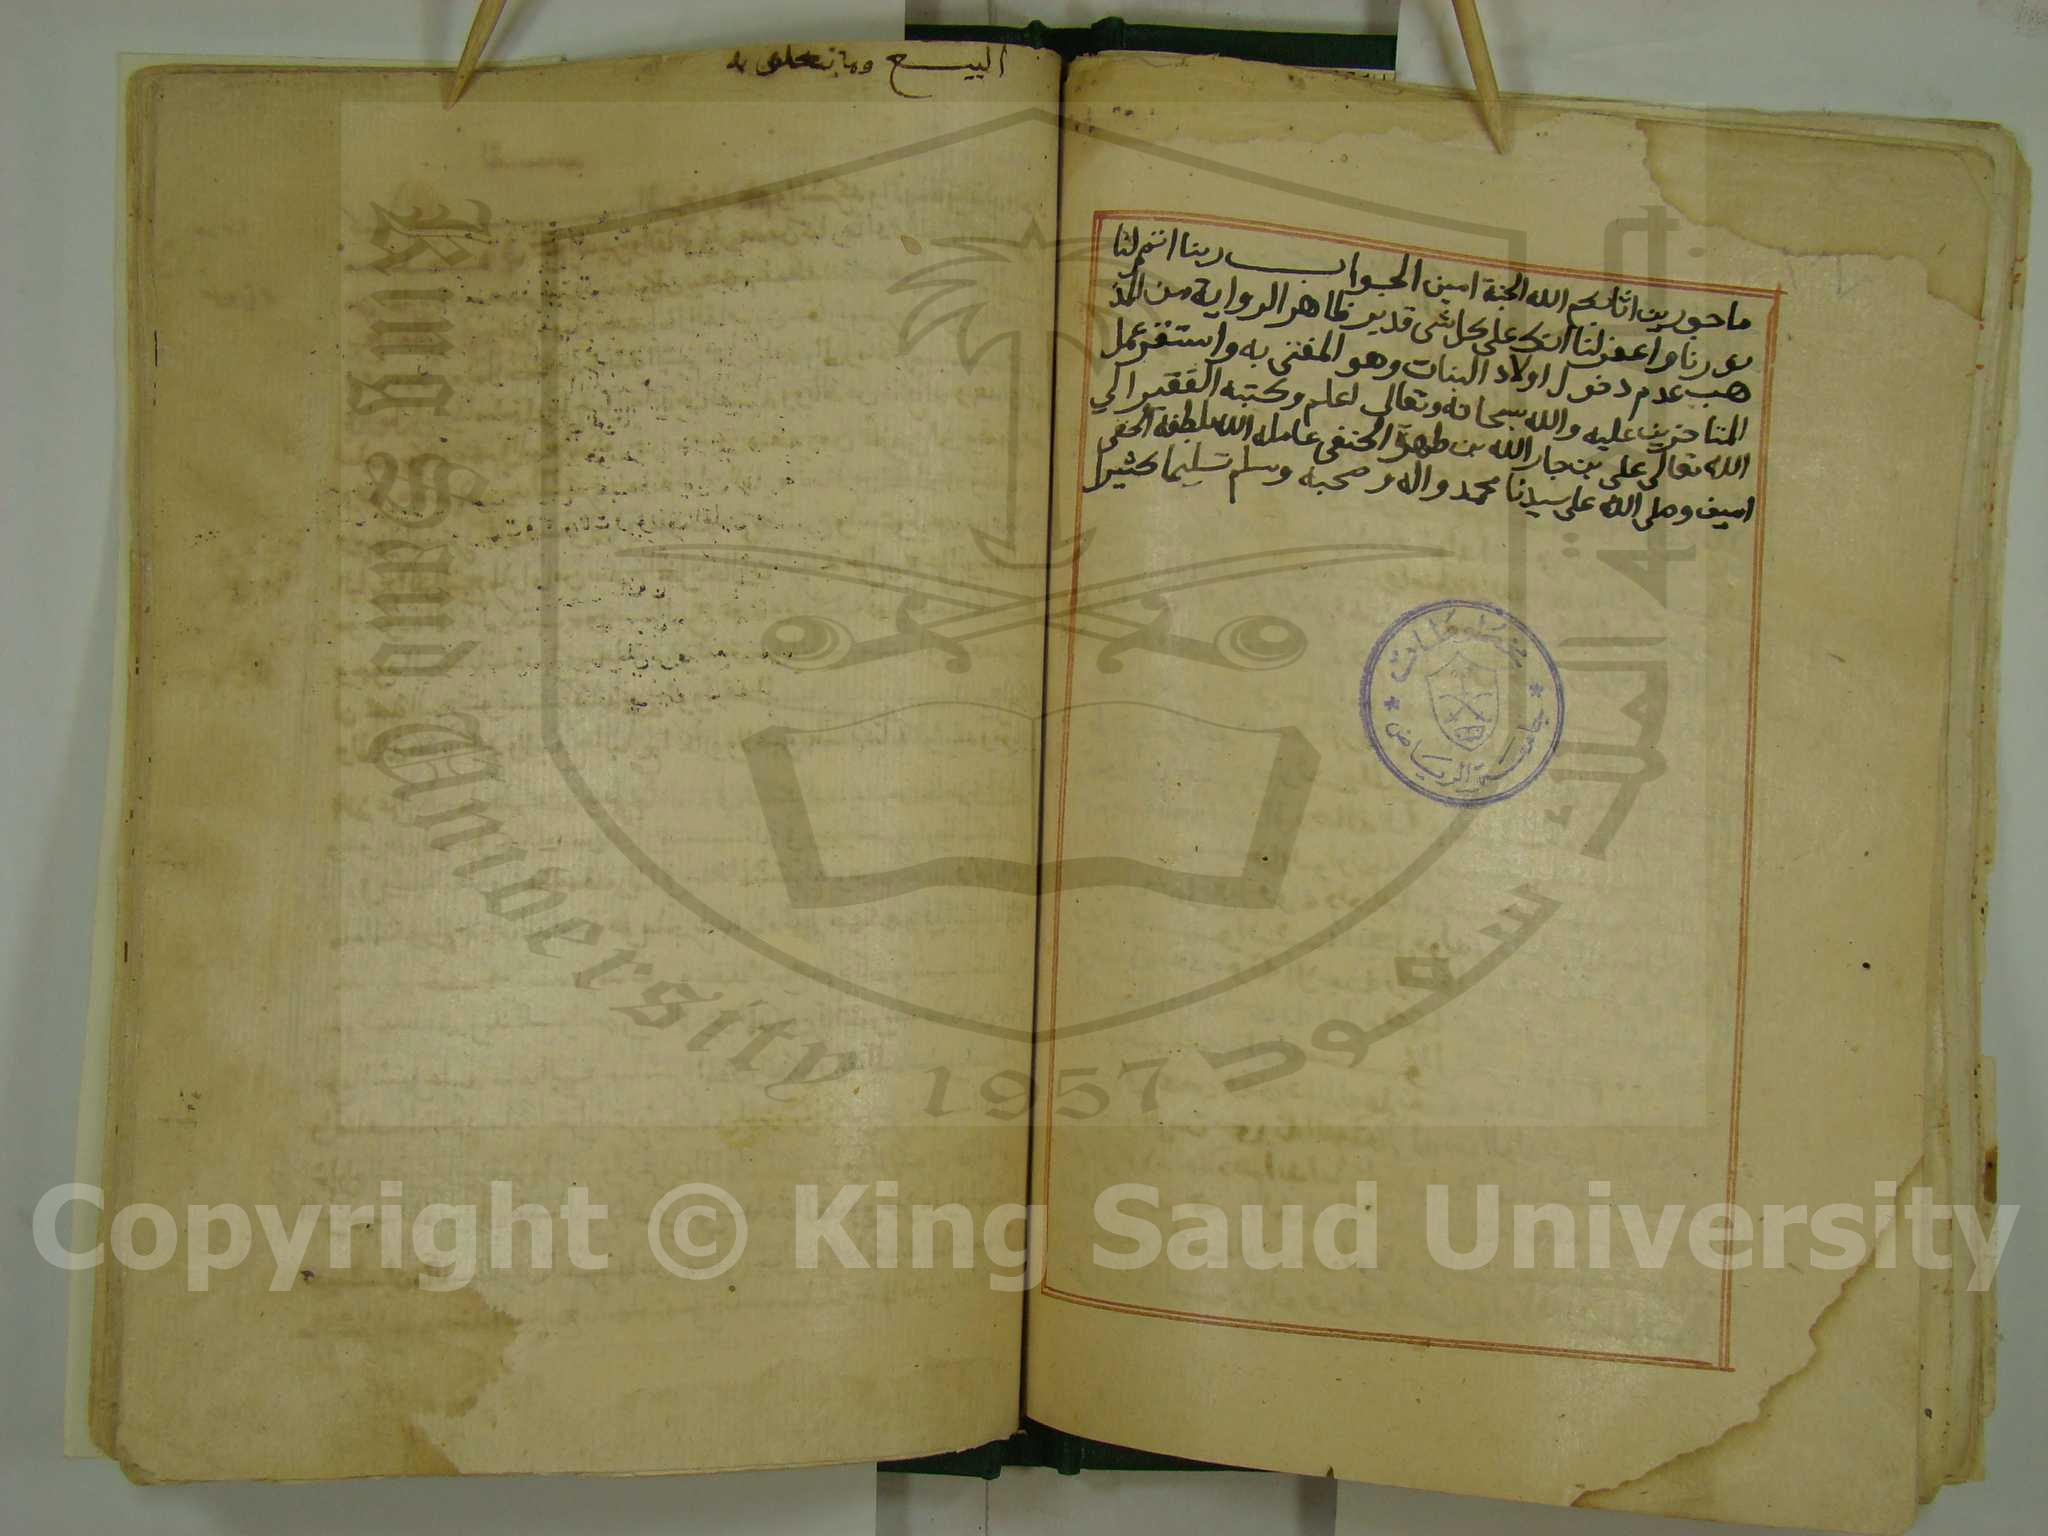 ماجورين اثابكم الله الجنة امين الجواب ربنا اتمم لنا
نورنا واغفر لنا انك على كل شى قدير ظاهر الرواية من المذ
هب عدم دخول اولاد البنات وهو المفتى به واستقر عمل
المتاخرين عليه والله سبحانه وتعالى اعلم وكتبه الفقير الى
الله تعالى على بن جار الله بن ظهيرة الحنفى عامله الله بلطفه الخفى
امين وصلى الله على سيدنا محمد واله وصحبه وسلم تسليما كثيرا
مخطوطات
جامعة الرياض
البيع وما يتعلق به
King Saud University
1957
جامعة الملك سعود
Copyright © King Saud University